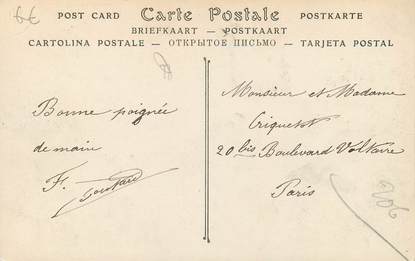 6€
POST CARD Carte Postale POSTKARTE
BRIEFKAART — POSTKAART
CARTOLINA POSTALE — ОТКРЫТОЕ ПИСЬМО — TARJETA POSTAL
Bonne poignée
de main
F.
Monsieur et Madame
Criquetot
20 bis Boulevard Voltaire
Paris